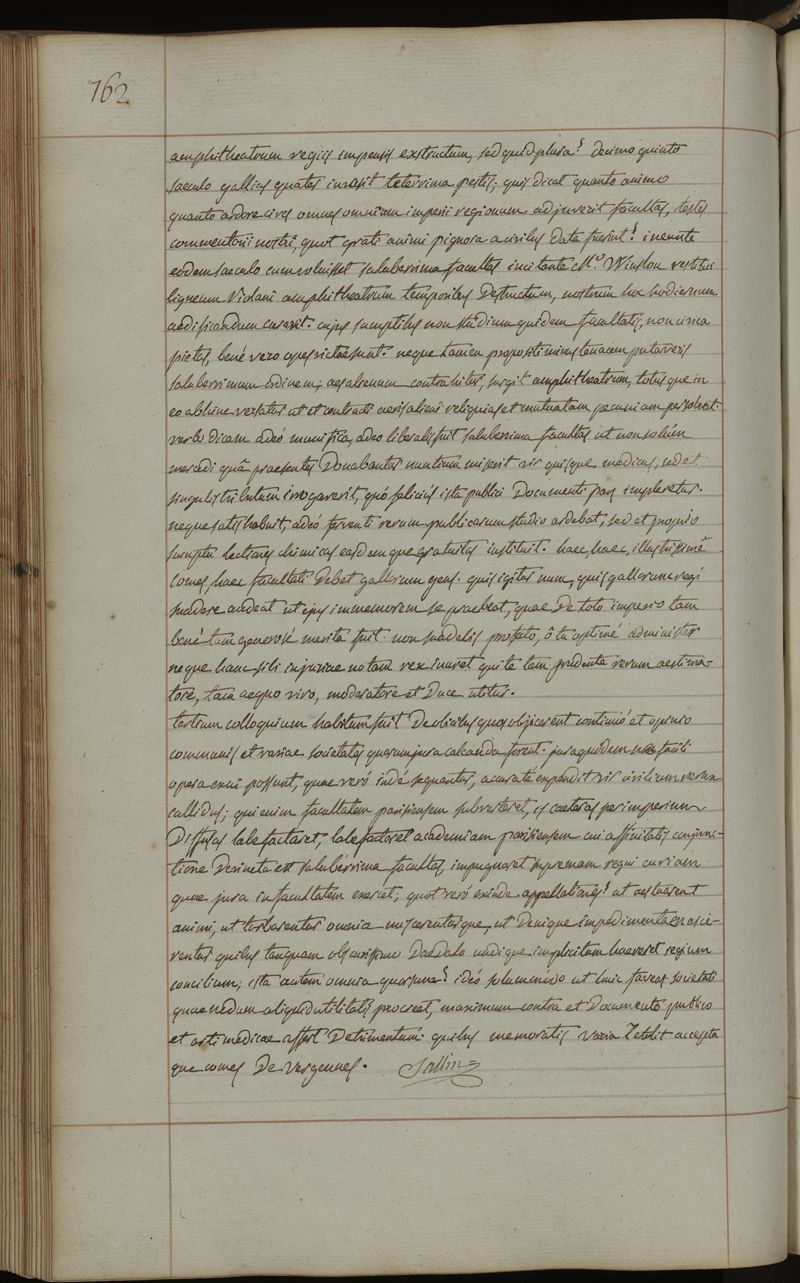 762
amphitheatrum regiis impensis exstructum, sed quid plura? decimo quinto
saeculo gallias quates invasit teterrima pestis; quis dicat quanto animo
quanto ardore cives omnes omnium imperii regionum adjuverit facultas, testes
commentarii nostri, quot grati animi pignora a civibus data fuerint? ineunte
eodem saeculo cum voluisset saluberrima facultas incitante Mo. Winslou restitui
ligneum Riolani amphitheatrum temporibus destructum, nostrum hoc hodiernum
aedificandum curavit. cujus sumptibus non studium quidem facultatis, non civica
pietas, bené vero opes victae sunt. neque tamen propositi minus tenacem putaveris
saluberrimum ordinem; aes alienum contrahitur, surgit amphitheatrum, totusque in
eo abhinc versatur ut et contracti aeris alieni reliquias et mutuatam pecuniam persolvat.
verbo dicam adeó munifica, adeo liberalis fuit saluberrima facultas ut non solúm
mercedi quâ praesentes donabantur nuntium miserit vir quisque medicus, sed et
singulis tributum irrogaverit, quó feliciús ista publici documenti pars impleretur.
neque satis habuit, adeó ferventi rerum publicarum studio ardebat, sed et propriis
sumptu lectiones chimicas easdemque gratuitas instituit. haec, haec, illustrissime
comes, haec facultati debet gallorum gens. quis igitur nunc, quis gallorum regi
suadere audeat ut ejus immemorem se praebeat, quae de toto imperio tam
bené tam generosé merita fuit. non suadebis profecto, ô tu optimé administer
neque hanc sibi injuriae notam rex inuret qui te tam prudente rerum aestima-
tore, tam aequo viro, moderatore et duce utitur.
tertium colloquium habitum fuit de obicibus quos objicerent continuó et opinio
communis et variae societates quarum jura calcanda forent. jura quidem facili
opera exui possunt, quae veró indé sequantur, accuraté expendit vir civilium rerum
callidus; qui enim facultatem parisiensem subverteret, is caeteras per imperium
diffusas labefactaret, labefactaret academiam parisiensem cui affinitatis conjunc-
tione devincta est saluberrima facultas, impugnaret supremam regni curiam
quae jura in facultatem exercet; quot veró exinde appellationes? ut aestuarent
animi, ut turbarentur omnia miscerenturque, ut denique impedimenta nasce-
rentur quibus tanquam obscurissimo daedalo undique implicitum haereret regium
concilium; ista autem omnia quorsum? ideó solummodo ut huic faveas societati
quae nedum aliquid utilitatis procreet, maximum contra et documento publico
et arti medicae affert detrimentum. quibus memoratis varia retulit accepta
que comes De Vergennes. Sallin